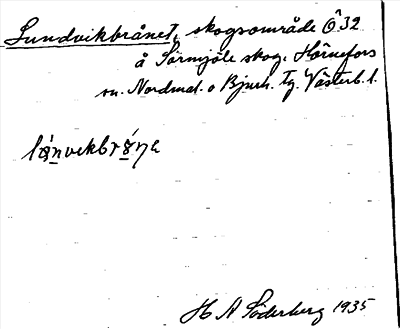 Lundvikbrånet, skogsområde Ö 32
å Sörmjöle skog. Hörnefors
sn. Nordmal. o Bjurh. tg. Västerb. l.
H A Söderberg 1935